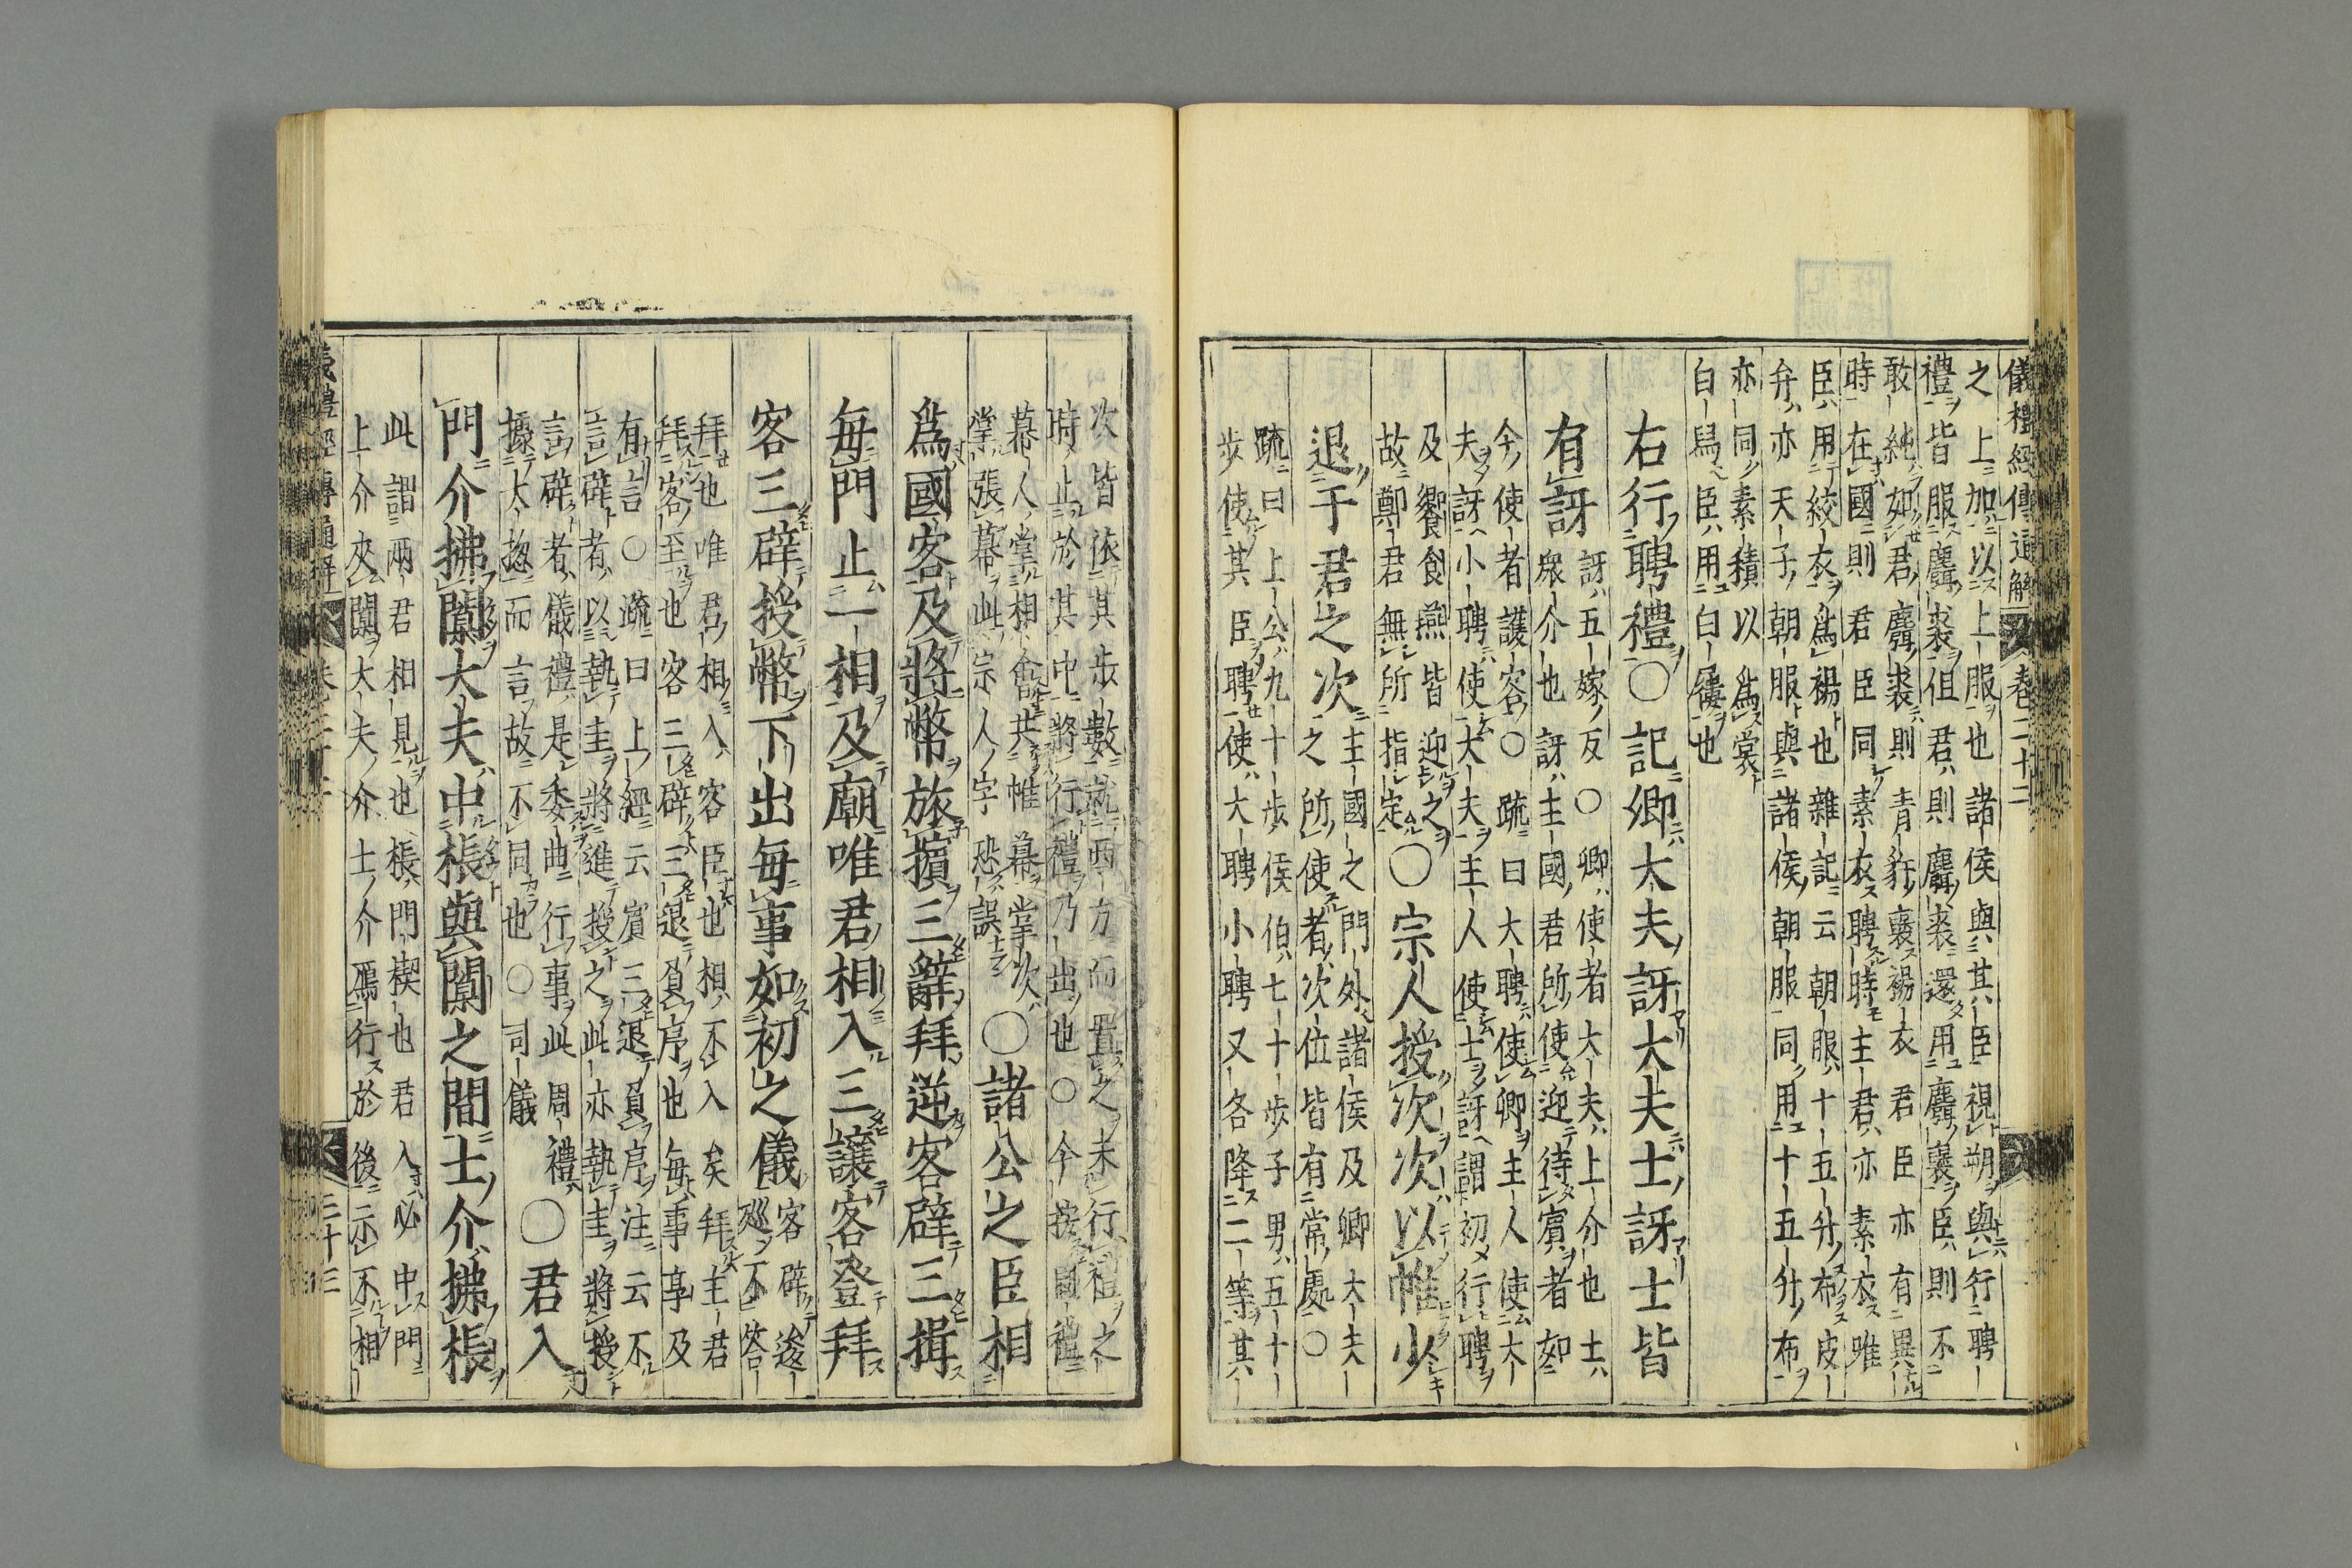 儀禮經傳通解 卷二十二
之上加以上服也諸侯與其臣視朔與行聘
禮皆服麛裘但君則麛裘還用麛褎臣則不
敢純如君麛裘則青豻褎裼衣君臣亦有異
時在國則君臣同素衣聘時主君亦素衣唯
臣用絞衣爲裼也雜記云朝服十五升布皮
弁亦天子朝服與諸侯朝服同用十五升布
亦同素積以爲裳
白舃臣用白屨也
右行聘禮○記卿大夫訝大夫士訝士皆
有訝訝五嫁反○卿使者大夫上介也士
衆介也訝主國君所使迎待賓者如
今使者護客○疏曰大聘使卿主人使大
夫訝小聘使大夫主人使士訝謂初行聘
及饗食燕皆迎之
故鄭君無所指定○宗人授次次以帷少
退于君之次主國之門外諸侯及卿大夫
之所使者次位皆有常處○
疏曰上公九十步侯伯七十步子男五十
步使其臣聘使大聘小聘又各降二等其
次皆依其步數就西方而置之未行禮之
時止於其中將行禮乃出也○今按國禮
幕人掌相會共帷幕掌次
掌張幕此宗人字恐誤○諸公之臣相
爲國客及將幣旅擯三辭拜逆客辟三揖
每門止一相及廟唯君相入三讓客登拜
客三辟授幣下出每事如初之儀客辟逡
廵不答
拜也唯君相入客臣也相不入矣拜主君
拜客至也客三辟三退負序也每事享及
有言○疏曰上經云賓三退負序注云不
言辟者以執圭將進授之此亦執圭將授
言辟者儀禮是委曲行事此周禮
據大揔而言故不同也○司儀○君入
門介拂闑大夫中棖與闑之閒士介拂棖
此謂兩君相見也棖門楔也君入必中門
上介夾闑大夫介士介鴈行於後示不相
儀禮經傳通解 卷二十二 三十三